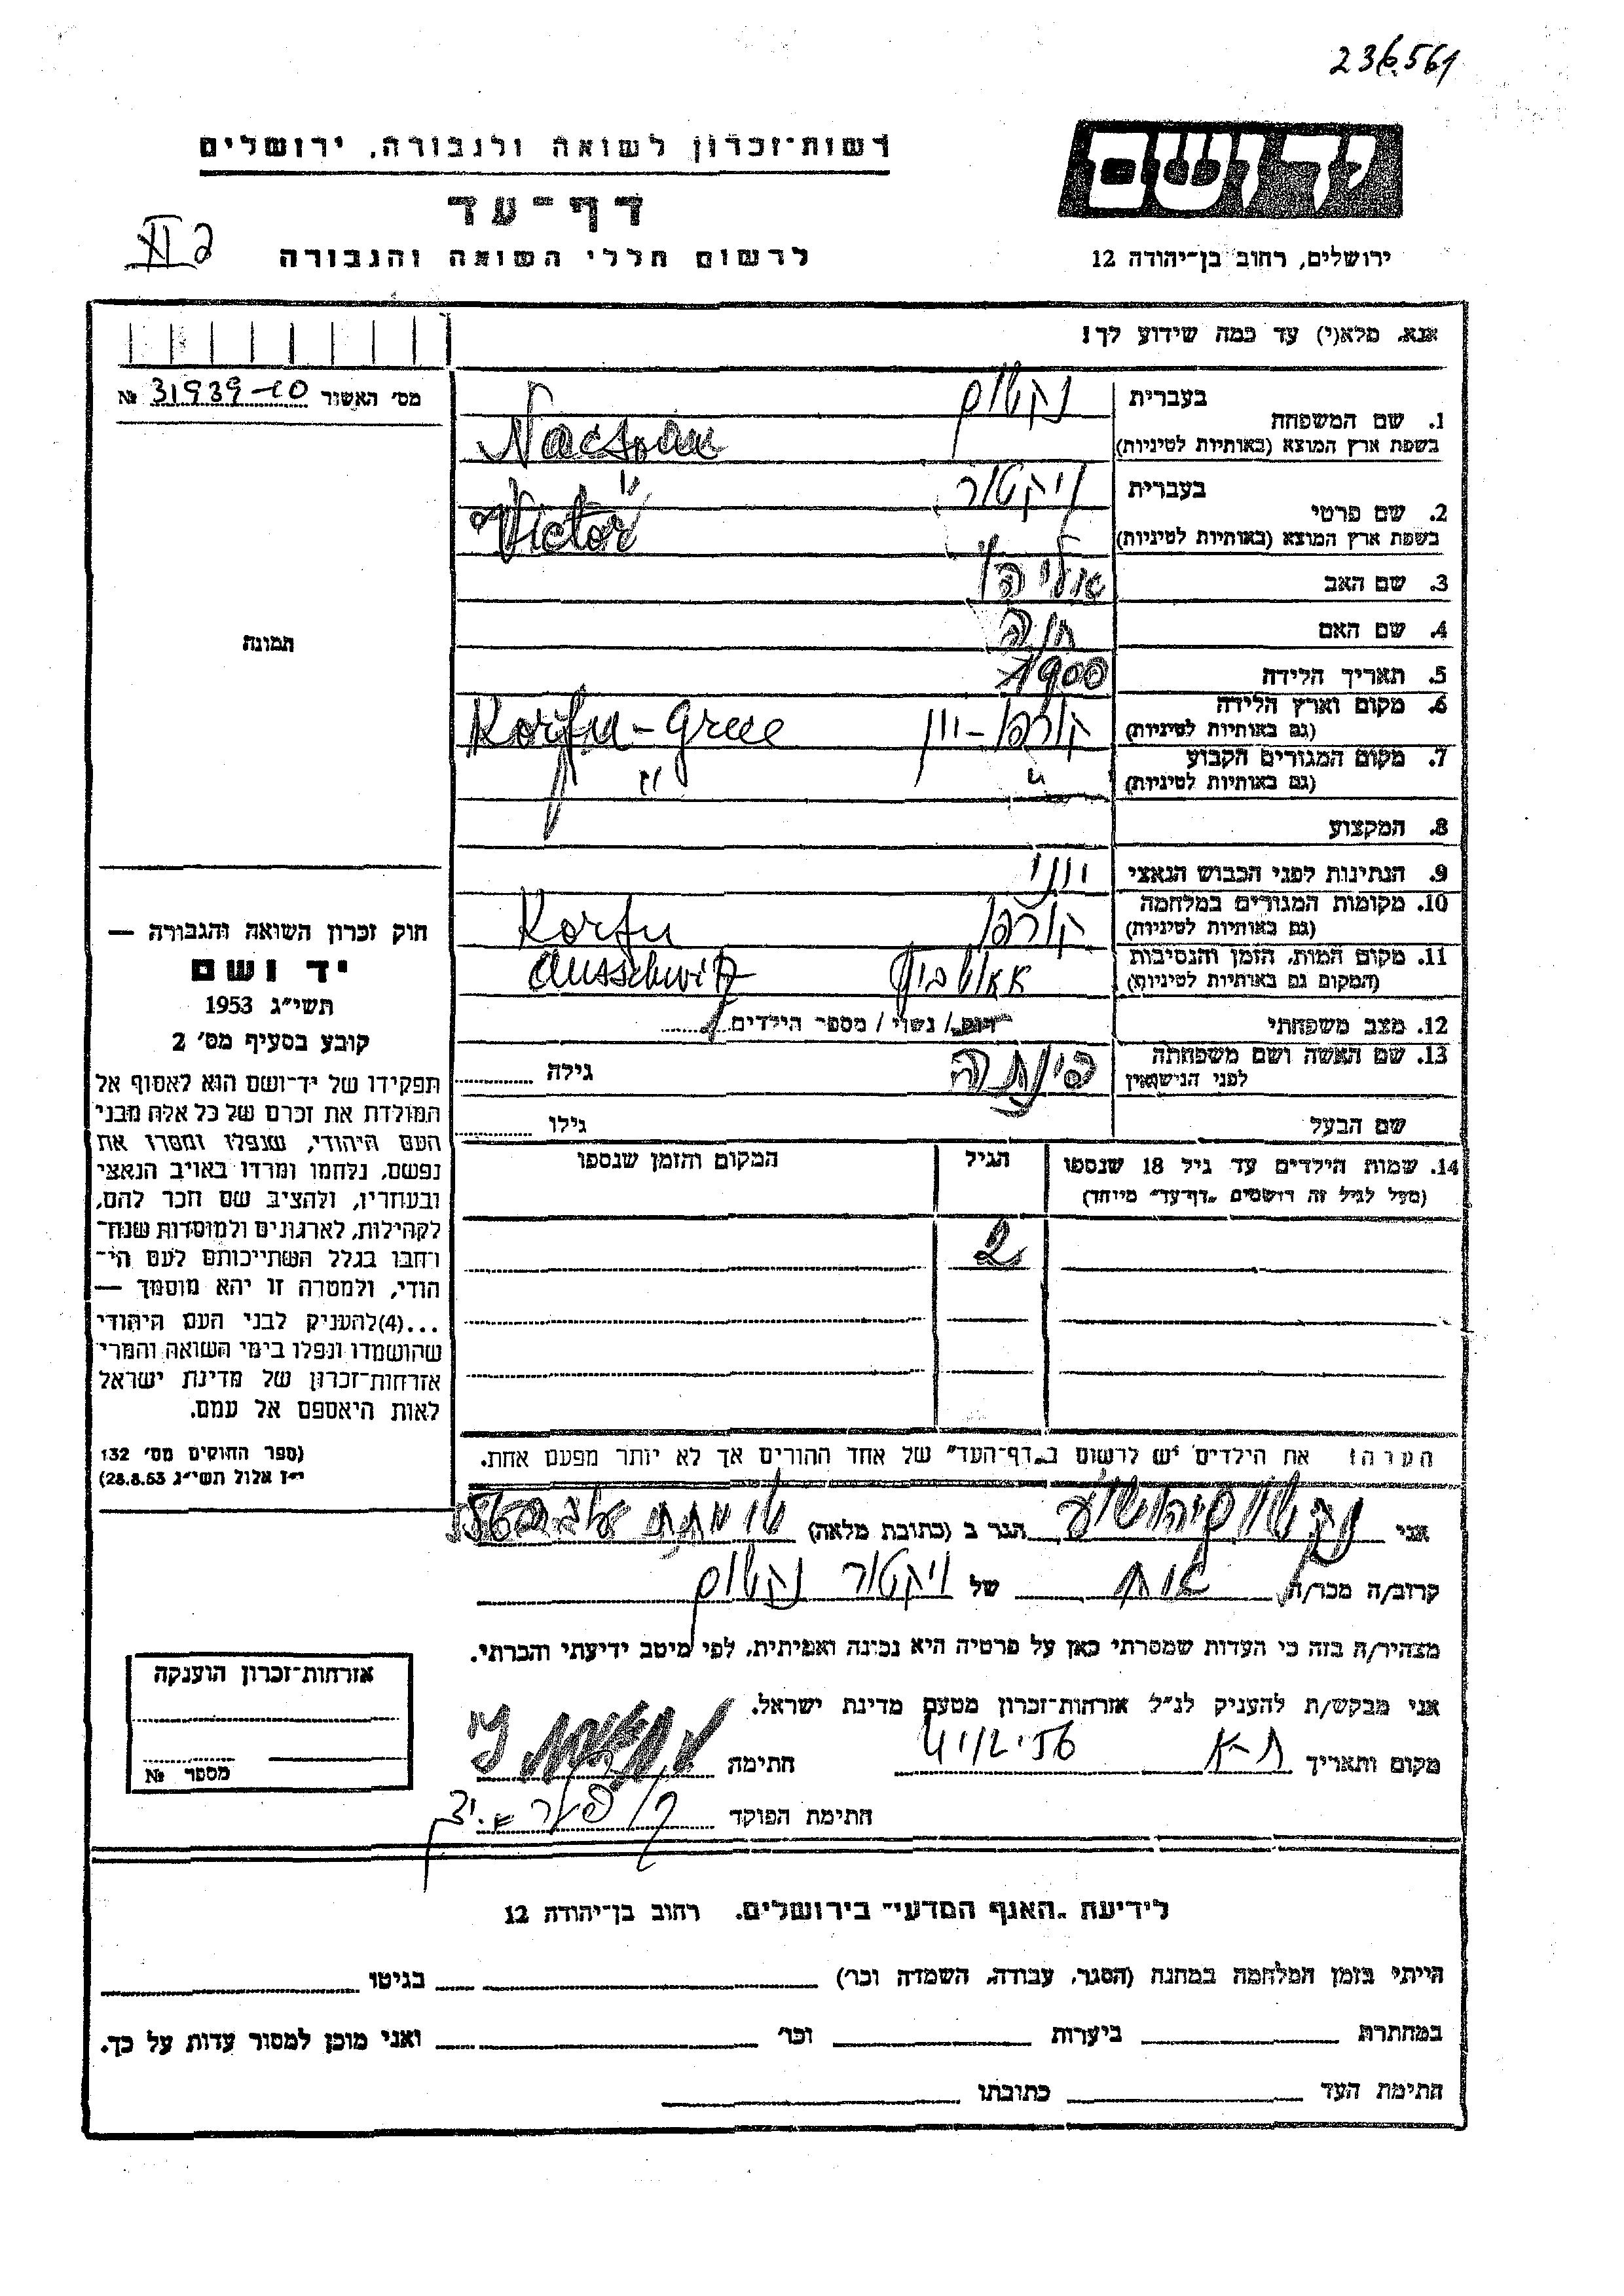 236561
רשות־זכרון לשואה ולגבורה, ירושלים
יד ושם
דף־עד
לרשום חללי השואה והגבורה
ירושלים, רחוב בן־יהודה 12
אנא, מלא(י) עד כמה שידוע לך!
מס׳ האשור № 31939-10
1. שם המשפחה
בעברית נקשום
בשפת ארץ המוצא (באותיות לטיניות)
2. שם פרטי
בעברית ויקטור
בשפת ארץ המוצא (באותיות לטיניות) Victor
3. שם האב אליהו
4. שם האם חנה
5. תאריך הלידה 1900
6. מקום וארץ הלידה
(גם באותיות לטיניות) קורפו - יוון Korfu - Greece
7. מקום המגורים הקבוע
(גם באותיות לטיניות) " "
8. המקצוע
9. הנתינות לפני הכבוש הנאצי יווני
10. מקומות המגורים במלחמה
(גם באותיות לטיניות) קורפו Korfu
11. מקום המות, הזמן והנסיבות
(המקום גם באותיות לטיניות) Ausschwitz
12. מצב משפחתי רווק / נשוי / מספר הילדים
13. שם האשה ושם משפחתה
לפני הנישואין גילה
שם הבעל גילו
14. שמות הילדים עד גיל 18 שנספו הגיל המקום והזמן שנספו
(מעל לגיל זה רושמים „דף־עד" מיוחד)
2
הערה! את הילדים יש לרשום ב„דף־העד" של אחד ההורים אך לא יותר מפעם אחת.
תמונה
חוק זכרון השואה והגבורה —
יד ושם
תשי״ג 1953
קובע בסעיף מס׳ 2
תפקידו של יד־ושם הוא לאסוף אל
המולדת את זכרם של כל אלה מבני
העם היהודי, שנפלו ומסרו את
נפשם, נלחמו ומרדו באויב הנאצי
ובעוזריו, ולהציב שם וזכר להם,
לקהילות, לארגונים ולמוסדות שנח־
רחבו בגלל השתייכותם לעם הי־
הודי, ולמטרה זו יהא מוסמך —
...(4)להעניק לבני העם היהודי
שהושמדו ונפלו בימי השואה והמרי
אזרחות־זכרון של מדינת ישראל
לאות היאספם אל עמם.
(ספר החוקים מס׳ 132
י״ז אלול תשי״ג 28.8.53)
אני נקשום יהושע הגר ב (כתובת מלאה)
קרוב/ה מכר/ה אח של ויקטור נקשום
מצהיר/ה בזה כי העדות שמסרתי כאן על פרטיה היא נכונה ואמיתית, לפי מיטב ידיעתי והכרתי.
אני מבקש/ת להעניק לנ״ל אזרחות־זכרון מטעם מדינת ישראל.
מקום ותאריך ת-א חתימה
חתימת הפוקד
אזרחות־זכרון הוענקה
מספר №
לידיעת „האגף המדעי" בירושלים, רחוב בן־יהודה 12
הייתי בזמן המלחמה במחנה (הסגר, עבודה, השמדה וכו׳) בגיטו
במחתרת ביערות וכו׳ ואני מוכן למסור עדות על כך.
חתימת העד כתובתו